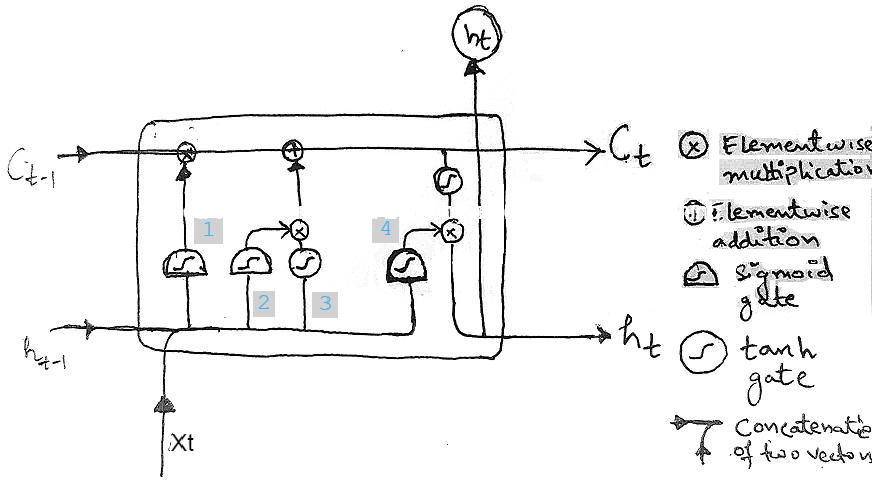 ht
C t-1
Ct
1
4
2
3
h t-1
ht
Xt
Elementwise
multiplication
Elementwise
addition
sigmoid
gate
tanh
gate
Concatenatio
of two vectors